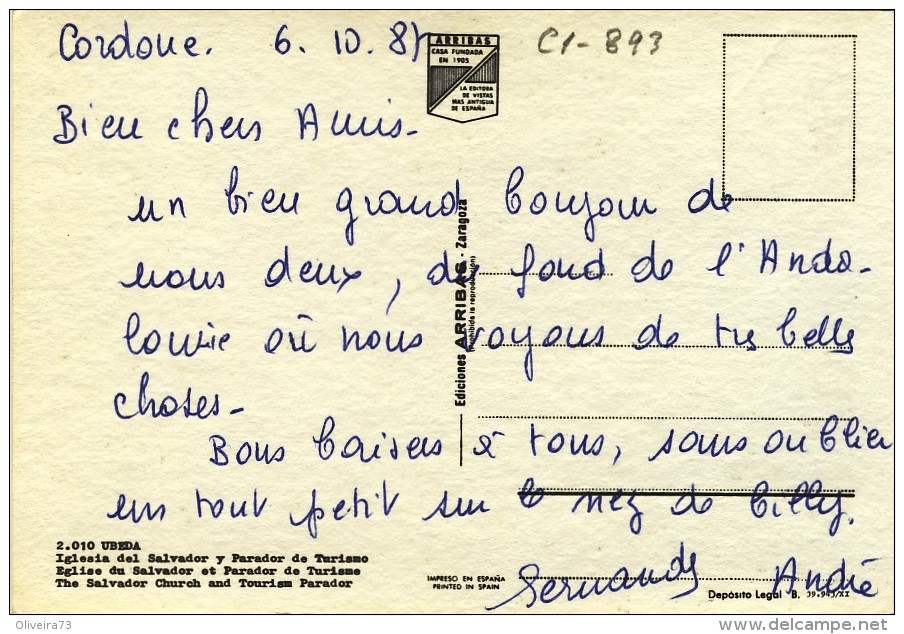 Cordoue. 6. 10. 87
C1-893
ARRIBAS
CASA FUNDADA
EN 1905
LA EDITORA
DE VISTAS
MAS ANTIGUA
DE ESPAÑA
Bien chers Amis-
un bien grand bonjour de
nous deux, du fond de l'Anda-
lousie où nous voyons de très belles
choses-
Bons baisers à tous, sans oublier
un tout petit sur le nez de Billy.
Fernande André
Ediciones ARRIBAS - Zaragoza
(Prohibida la reproducción)
2.010 UBEDA
Iglesia del Salvador y Parador de Turismo
Eglise du Salvador et Parador de Turisme
The Salvador Church and Tourism Parador
IMPRESO EN ESPAÑA
PRINTED IN SPAIN
Depósito Legal B. 39.943/XI
Oliveira73
www.delcampe.net